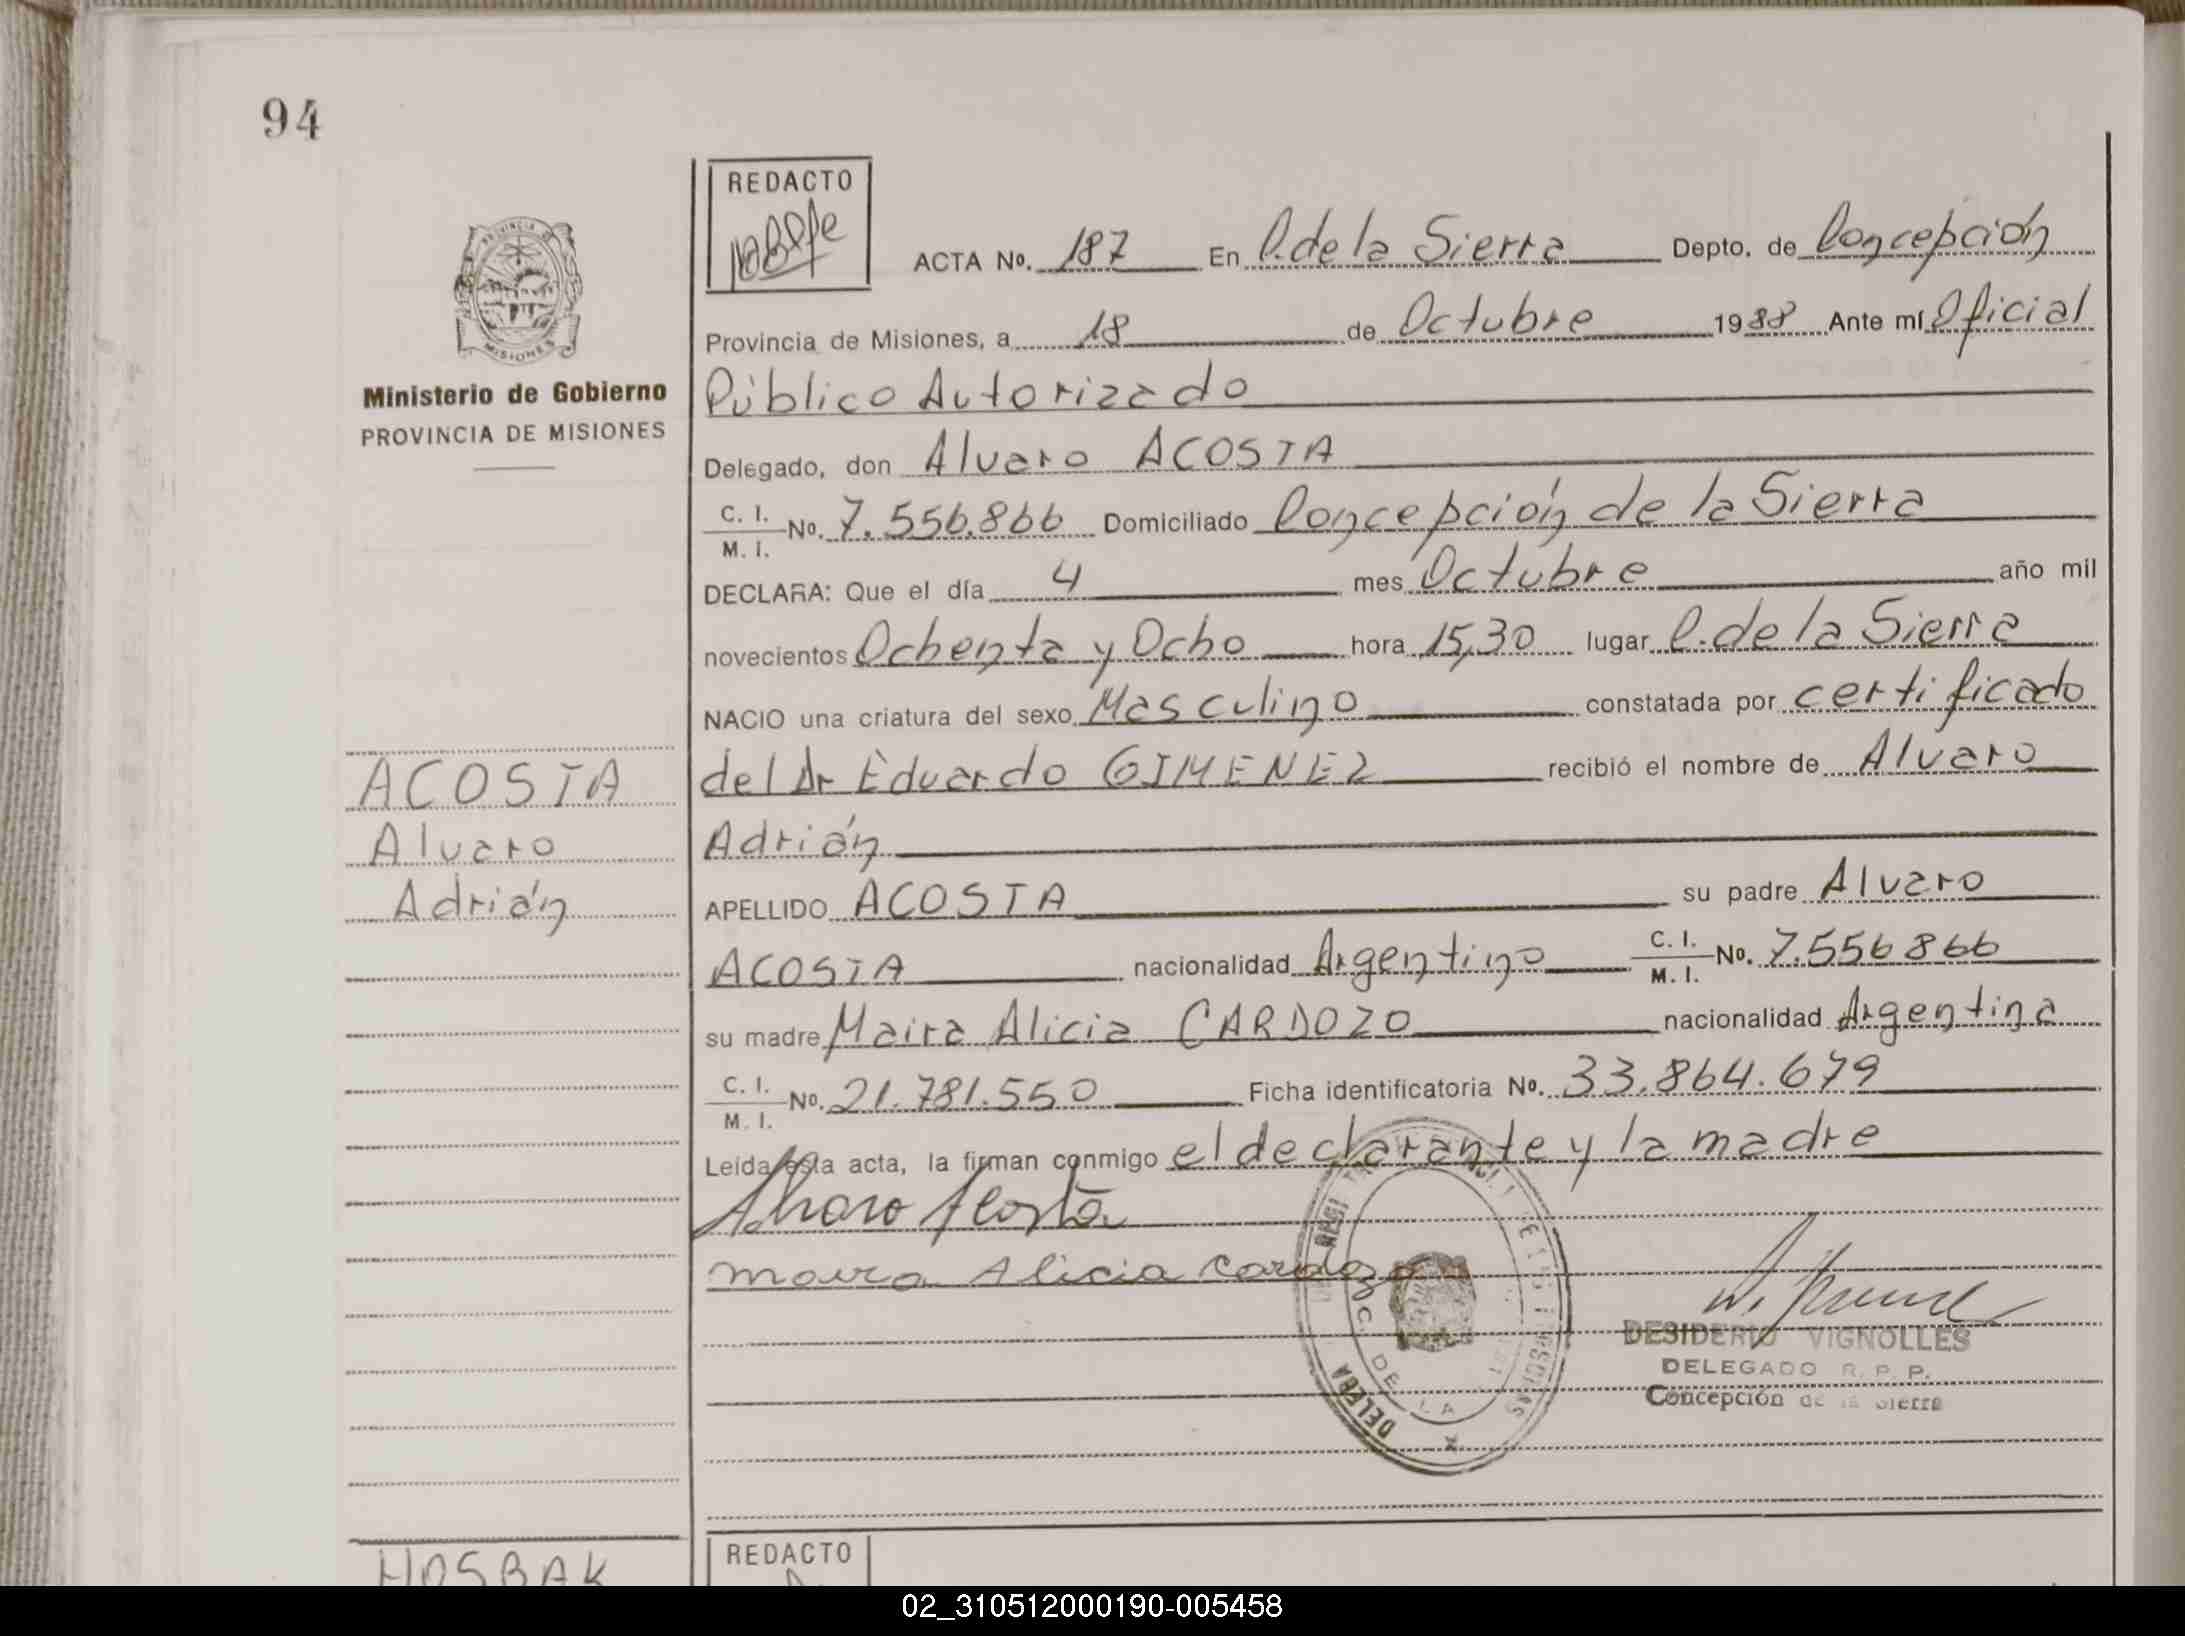 94
REDACTO
ACTA No. 187 En C. de la Sierra Depto. de Concepción
Provincia de Misiones, a 18 de Octubre 1988 Ante mí Oficial
Público Autorizado
Delegado, don Alvaro ACOSTA
C. I.
M. I.
No. 7.556.866 Domiciliado Concepción de la Sierra
DECLARA: Que el día 4 mes Octubre año mil
novecientos Ochenta y Ocho hora 15,30 lugar C. de la Sierra
NACIO una criatura del sexo Masculino constatada por certificado
del Dr Eduardo GIMENEZ recibió el nombre de Alvaro
Adrián
APELLIDO ACOSTA su padre Alvaro
ACOSTA nacionalidad Argentino C. I. M. I. No. 7.556866
su madre Maira Alicia CARDOZO nacionalidad Argentina
C. I.
M. I.
No. 21.781.550 Ficha identificatoria No. 33.864.679
Leída esta acta, la firman conmigo el declarante y la madre
Alvaro Acosta
Maira Alicia Cardozo
DESIDERIO VIGNOLLES
DELEGADO R. P. P.
Concepción de la Sierra
DE LA
PROVINCIA DE
MISIONES
Ministerio de Gobierno
PROVINCIA DE MISIONES
ACOSTA
Alvaro
Adrián
HOSBAK
REDACTO
02_310512000190-005458